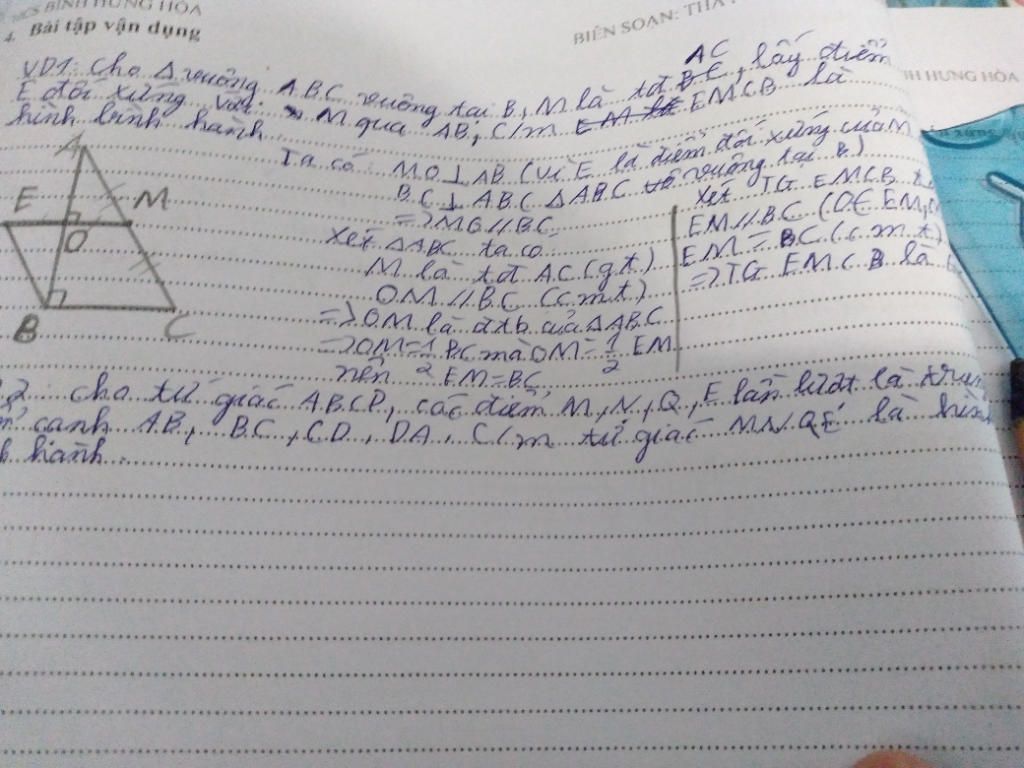 MCS BÌNH HƯNG HÒA
4. Bài tập vận dụng
BIÊN SOẠN:
NH HƯNG HÒA
VD1: Cho Δ vuông ABC vuông tại B, M là tđ BC AC, lấy điểm
E đối xứng với M qua AB, C/m EM EMCB là
hình bình hành
A
E
M
O
B
C
Ta có: MO ⊥ AB (vì E là điểm đối xứng của M
BC ⊥ AB (ΔABC vuông tại B)
=> MO // BC
Xét ΔABC ta có
M là tđ AC (gt)
OM // BC (cmt)
=> OM là đtb của ΔABC
=> OM = 1/2 BC mà OM = 1/2 EM
nên EM = BC
Xét TG EMCB
EM // BC (O ∈ EM,
EM = BC (cmt)
=> TG EMCB là
2 cho tứ giác ABCD, các điểm M, N, Q, E lần lượt là
cạnh AB, BC, CD, DA. C/m tứ giác MNQE là
hành.